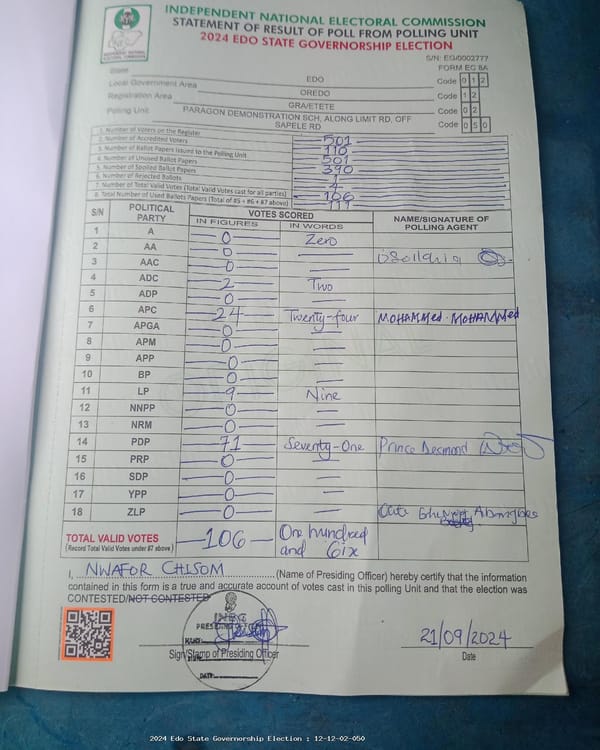 INDEPENDENT NATIONAL ELECTORAL COMMISSION
STATEMENT OF RESULT OF POLL FROM POLLING UNIT
2024 EDO STATE GOVERNORSHIP ELECTION
S/N: EG/0002777
FORM EC 8A
State EDO Code 0 1 2
Local Government Area OREDO Code 1 2
Registration Area GRA/ETETE Code 0 2
Polling Unit PARAGON DEMONSTRATION SCH, ALONG LIMIT RD, OFF SAPELE RD Code 0 5 0
1. Number of Voters on the Register 501
2. Number of Accredited Voters 110
3. Number of Ballot Papers Issued to the Polling Unit 501
4. Number of Unused Ballot Papers 390
5. Number of Spoiled Ballot Papers 1
6. Number of Rejected Ballots 4
7. Number of Total Valid Votes (Total Valid Votes cast for all parties) 106
8. Total Number of Used Ballots Papers (Total of #5 + #6 + #7 above) 111
S/N POLITICAL PARTY VOTES SCORED NAME/SIGNATURE OF POLLING AGENT
IN FIGURES IN WORDS
1 A 0 Zero
2 AA 0
3 AAC 0
4 ADC 2 Two
5 ADP 0
6 APC 24 Twenty-four MOHAMMed MOHAMMed
7 APGA 0
8 APM 0
9 APP 0
10 BP 0
11 LP 9 Nine
12 NNPP 0
13 NRM 0
14 PDP 71 Seventy-One Prince Desmond
15 PRP 0
16 SDP 0
17 YPP 0
18 ZLP 0
TOTAL VALID VOTES 106 One hundred and Six
(Record Total Valid Votes under #7 above)
I, NWAFOR CHISOM (Name of Presiding Officer) hereby certify that the information
contained in this form is a true and accurate account of votes cast in this polling Unit and that the election was
CONTESTED/NOT CONTESTED
INEC
PRESIDING
DATE
21/09/2024
Sign/Stamp of Presiding Officer Date
2024 Edo State Governorship Election : 12-12-02-050